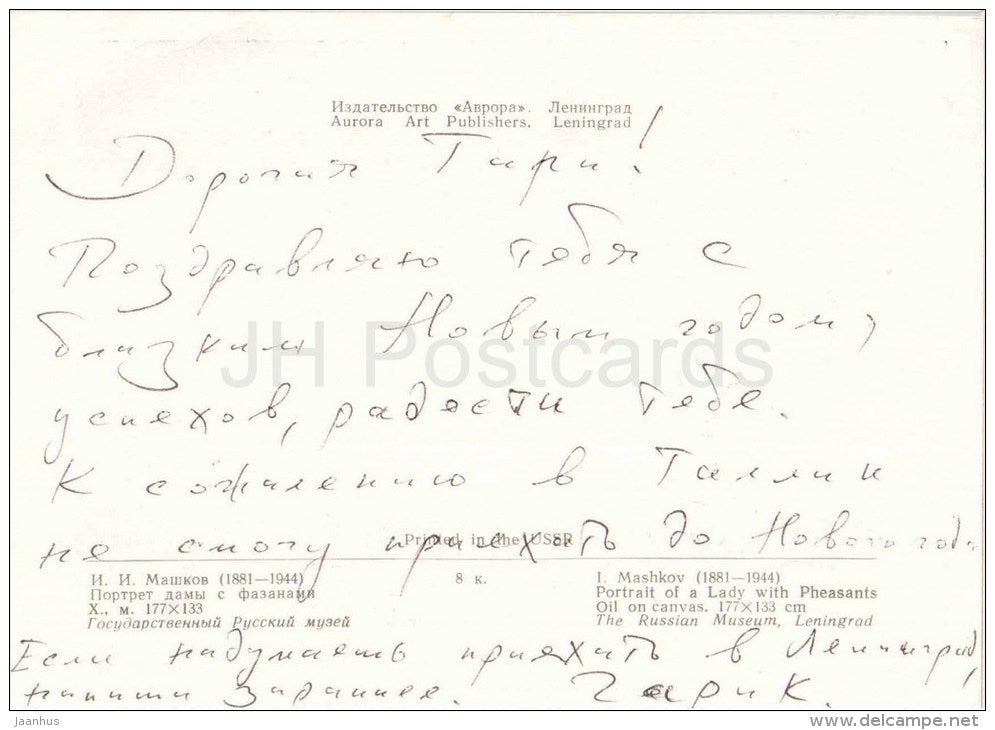 Издательство «Аврора». Ленинград
Aurora Art Publishers. Leningrad
Дорогая Тири!
Поздравляю тебя с
близким Новым годом,
JH Postcards
успехов, радости тебе.
К сожалению в Таллин
не смогу приехать до Нового года
Printed in the USSR
И. И. Машков (1881—1944)
Портрет дамы с фазанами
Х., м. 177×133
Государственный Русский музей
8 к.
I. Mashkov (1881—1944)
Portrait of a Lady with Pheasants
Oil on canvas. 177×133 cm
The Russian Museum, Leningrad
Если надумаешь приехать в Ленинград,
напиши заранее. Гарик.
jaanhus
www.delcampe.net